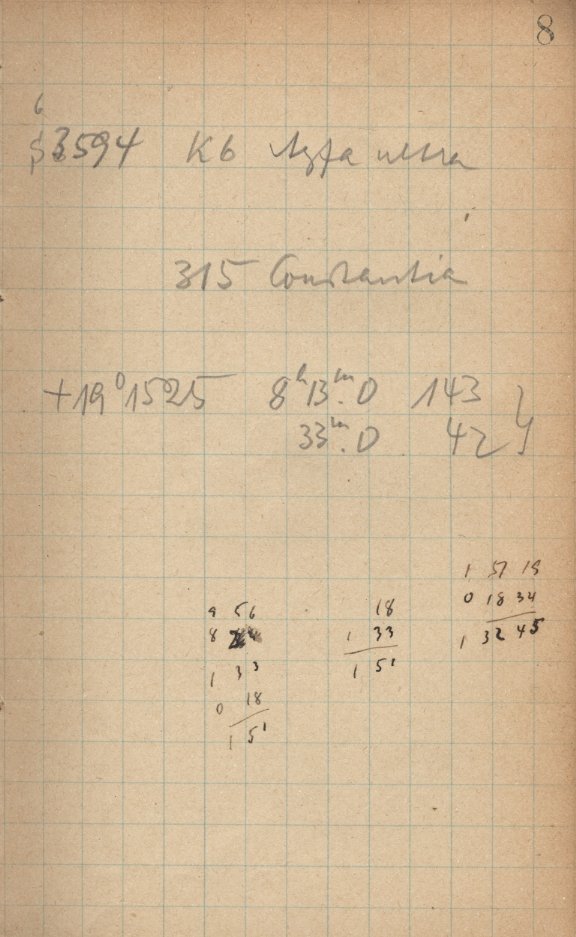 8
6
3594 K6 Agfa ultra
315 Constantia
+19° 1525 8ʰ13ᵐ.0 143 }
33ᵐ.0 42
1 51 19
0 18 34
1 32 45
9 56
8
1 33
0 18
1 51
18
1 33
1 51